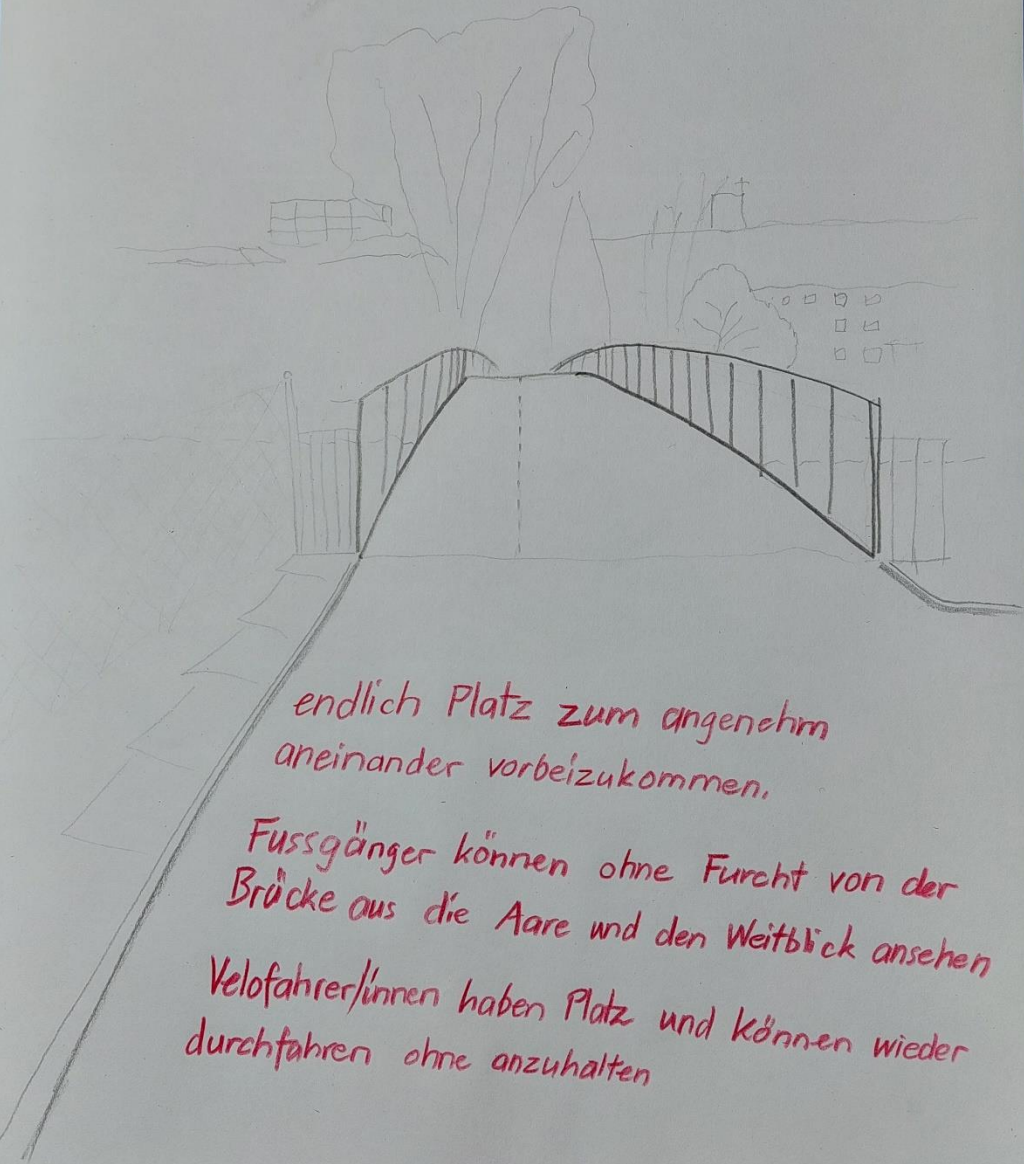 endlich Platz zum angenehm
aneinander vorbeizukommen.
Fussgänger können ohne Furcht von der
Brücke aus die Aare und den Weitblick ansehen
Velofahrer/innen haben Platz und können wieder
durchfahren ohne anzuhalten